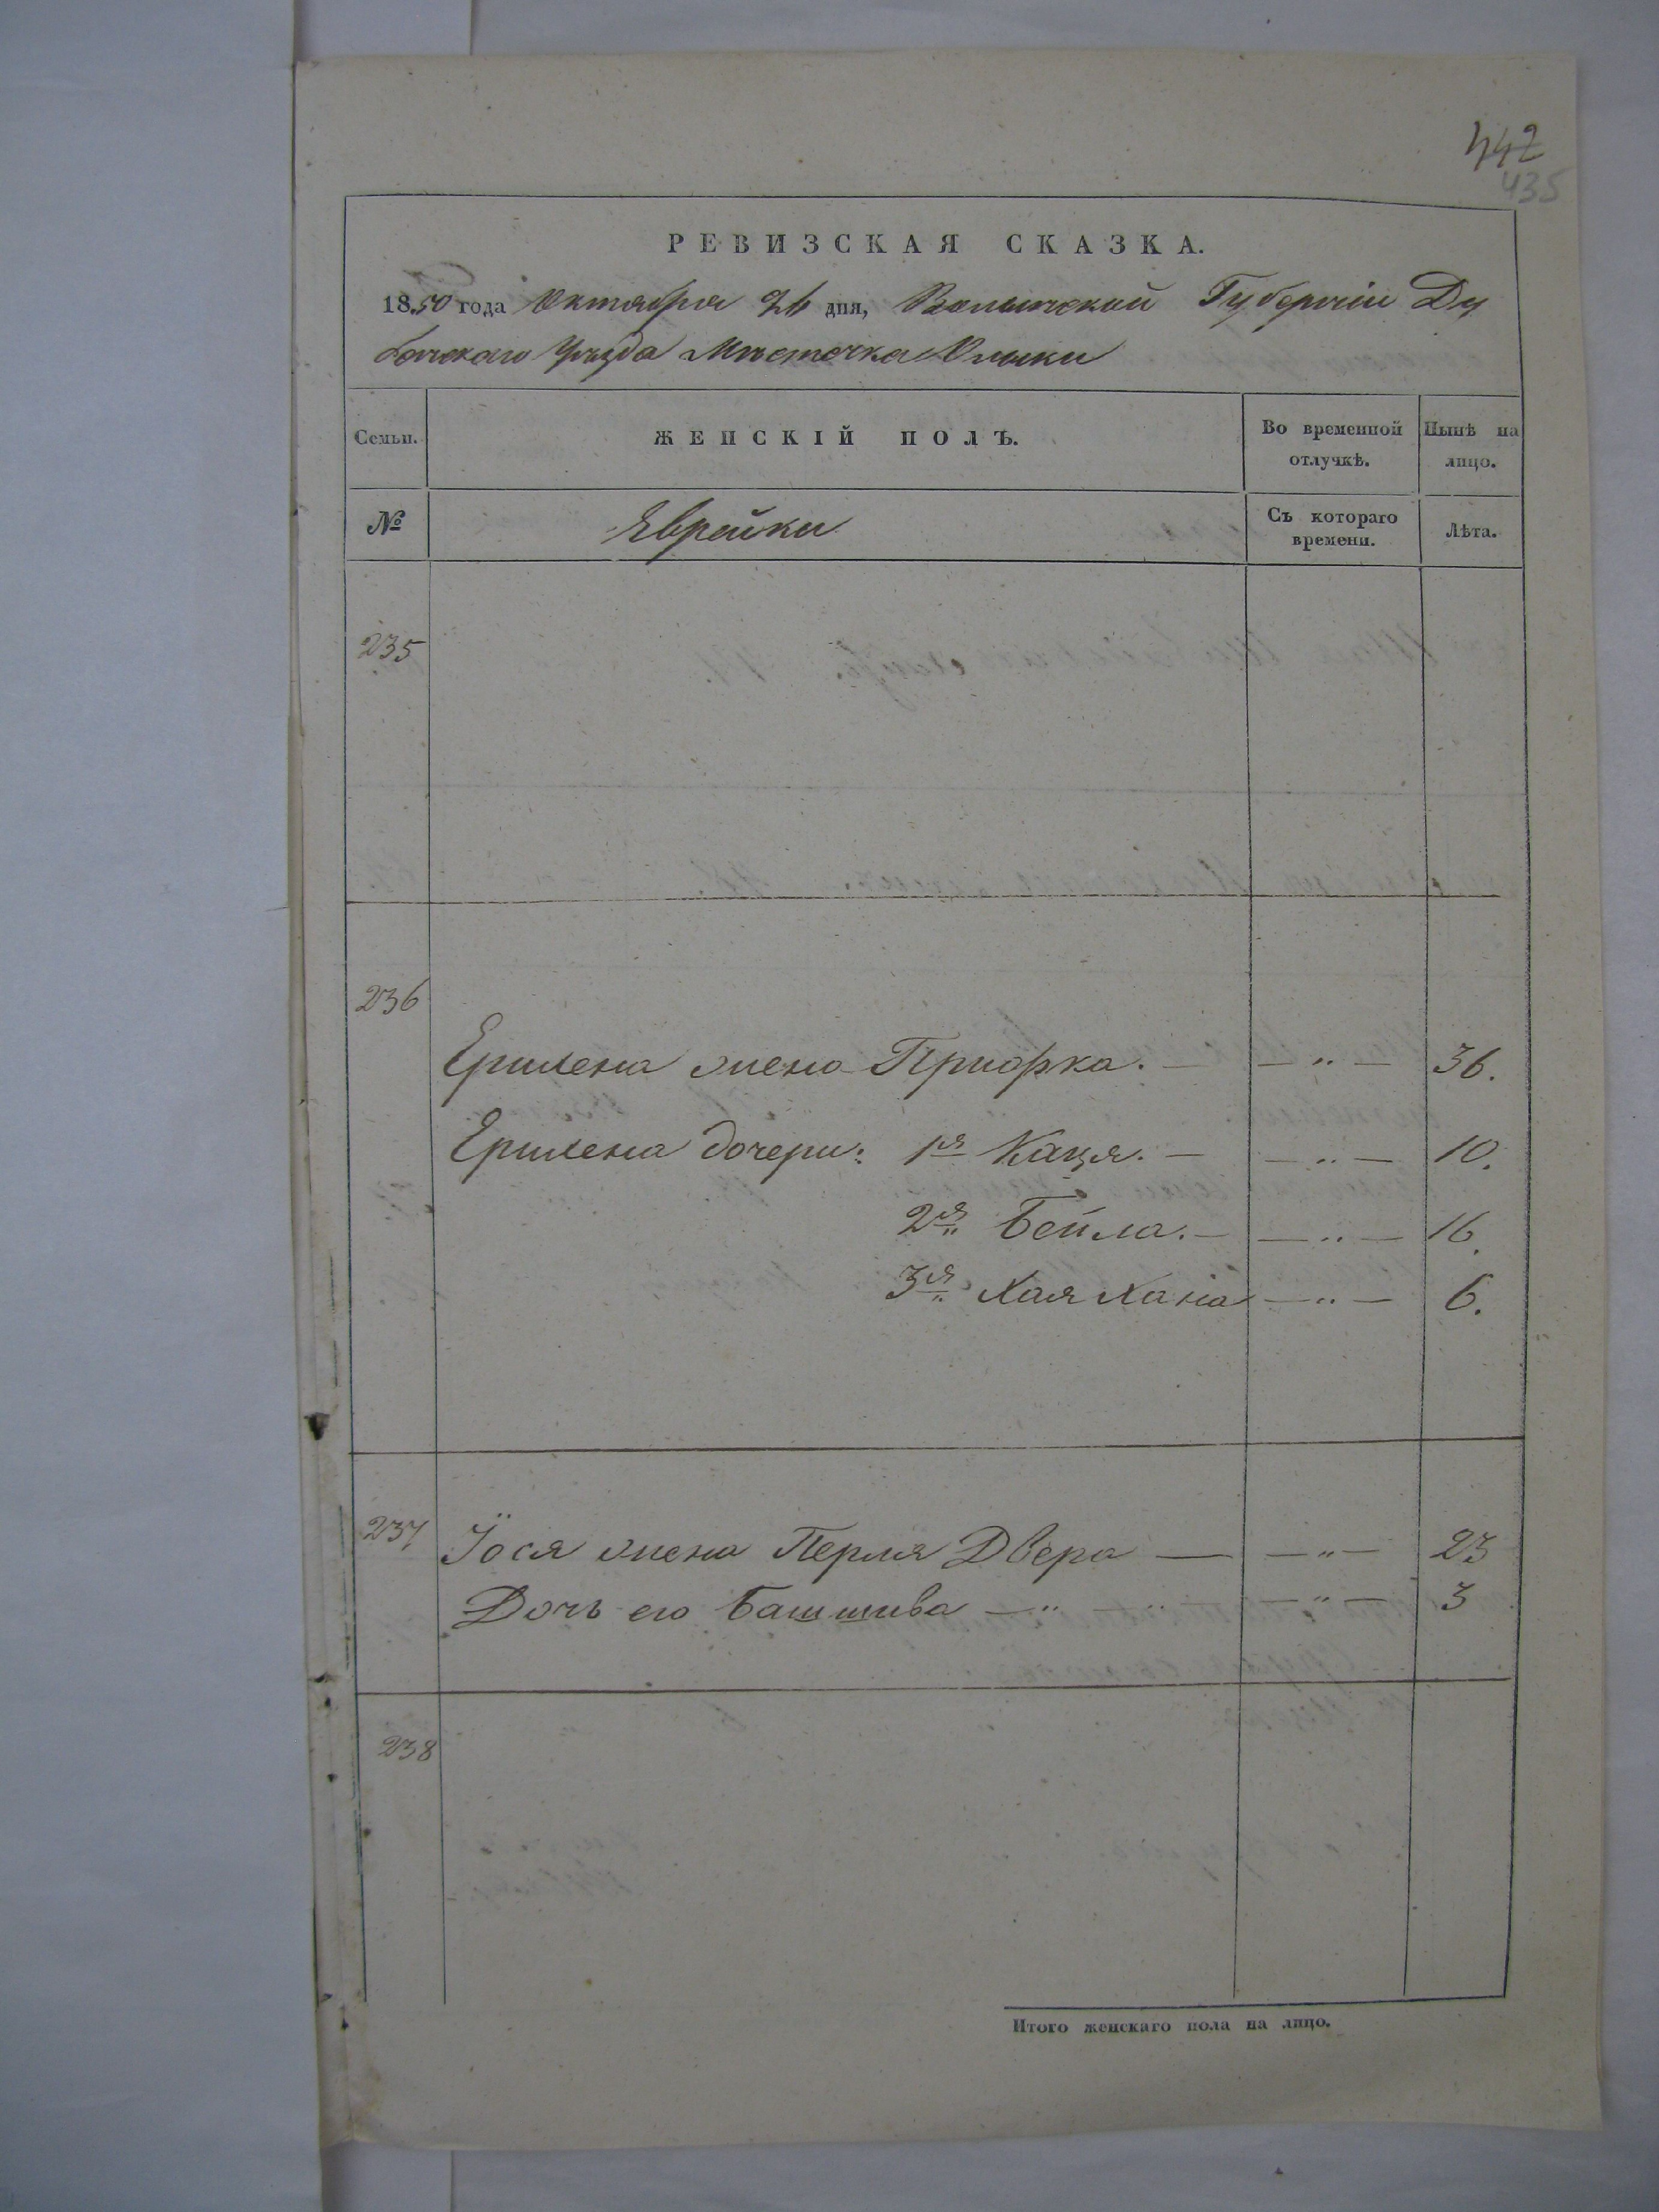 442
435
РЕВИЗСКАЯ СКАЗКА.
1850 года Октября 26 дня, Волынской Губерніи Ду
бенскаго Уѣзда Мѣстечка Олыки
Семьи. ЖЕНСКІЙ ПОЛЪ. Во временной отлучкѣ. Нынѣ на лицо.
№ Еврейки Съ котораго времени. Лѣта.
235
236
жена — — „ — 36.
дочери: 1я — — „ — 10.
2я Бейла. — — „ — 16.
3я Хая Хана — „ — 6.
237 Іося жена Перля Двера — — „ — 23
Дочь его Башшива — „ — „ — — „ — 3
238
Итого женскаго пола на лицо.